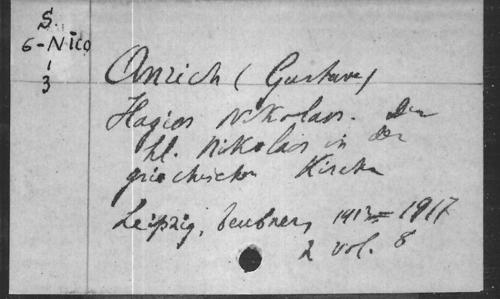 S.
6-Nico
1
3
Anrich (Gustave)
Hagios Nikolaos. Der
hl. Nikolaos in der
griechischen Kirche
Leipzig, Teubner, 1913=1917
2 vol. 8